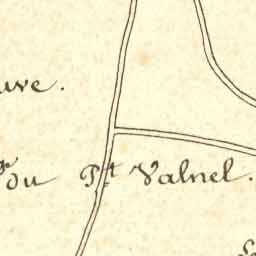 uve.
du P.t Valnel.